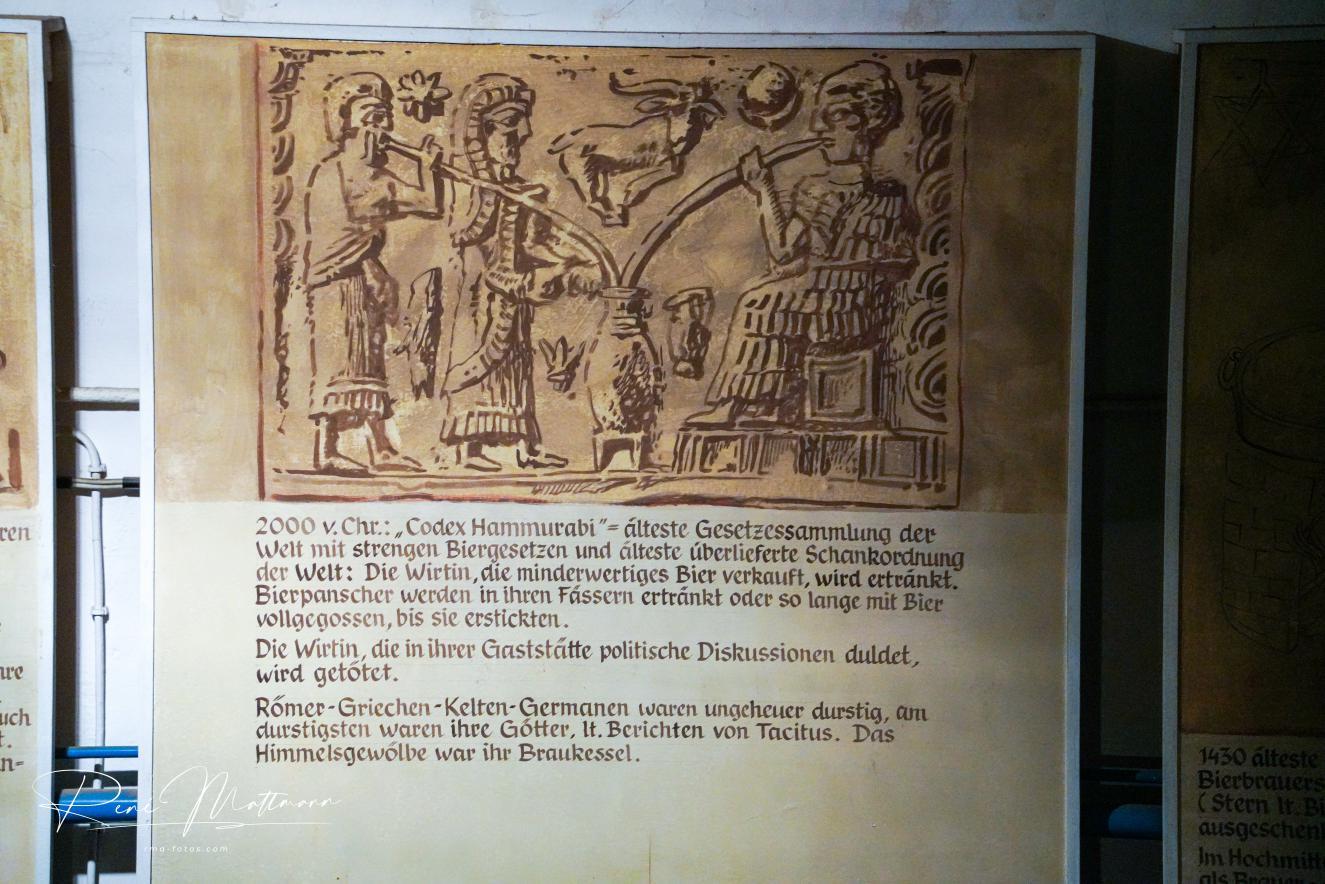 2000 v. Chr.: „Codex Hammurabi" = älteste Gesetzessammlung der
Welt mit strengen Biergesetzen und älteste überlieferte Schankordnung
der Welt: Die Wirtin, die minderwertiges Bier verkauft, wird ertränkt.
Bierpanscher werden in ihren Fässern ertränkt oder so lange mit Bier
vollgegossen, bis sie erstickten.
Die Wirtin, die in ihrer Gaststätte politische Diskussionen duldet,
wird getötet.
Römer-Griechen-Kelten-Germanen waren ungeheuer durstig, am
durstigsten waren ihre Götter, lt. Berichten von Tacitus. Das
Himmelsgewölbe war ihr Braukessel.
1430 älteste
Bierbrauers
(Stern lt. Bi
ausgeschen
Im Hochmitt
als Brauer-
ren
re
uch
t.
n=
René Mattmann
rma-fotos.com